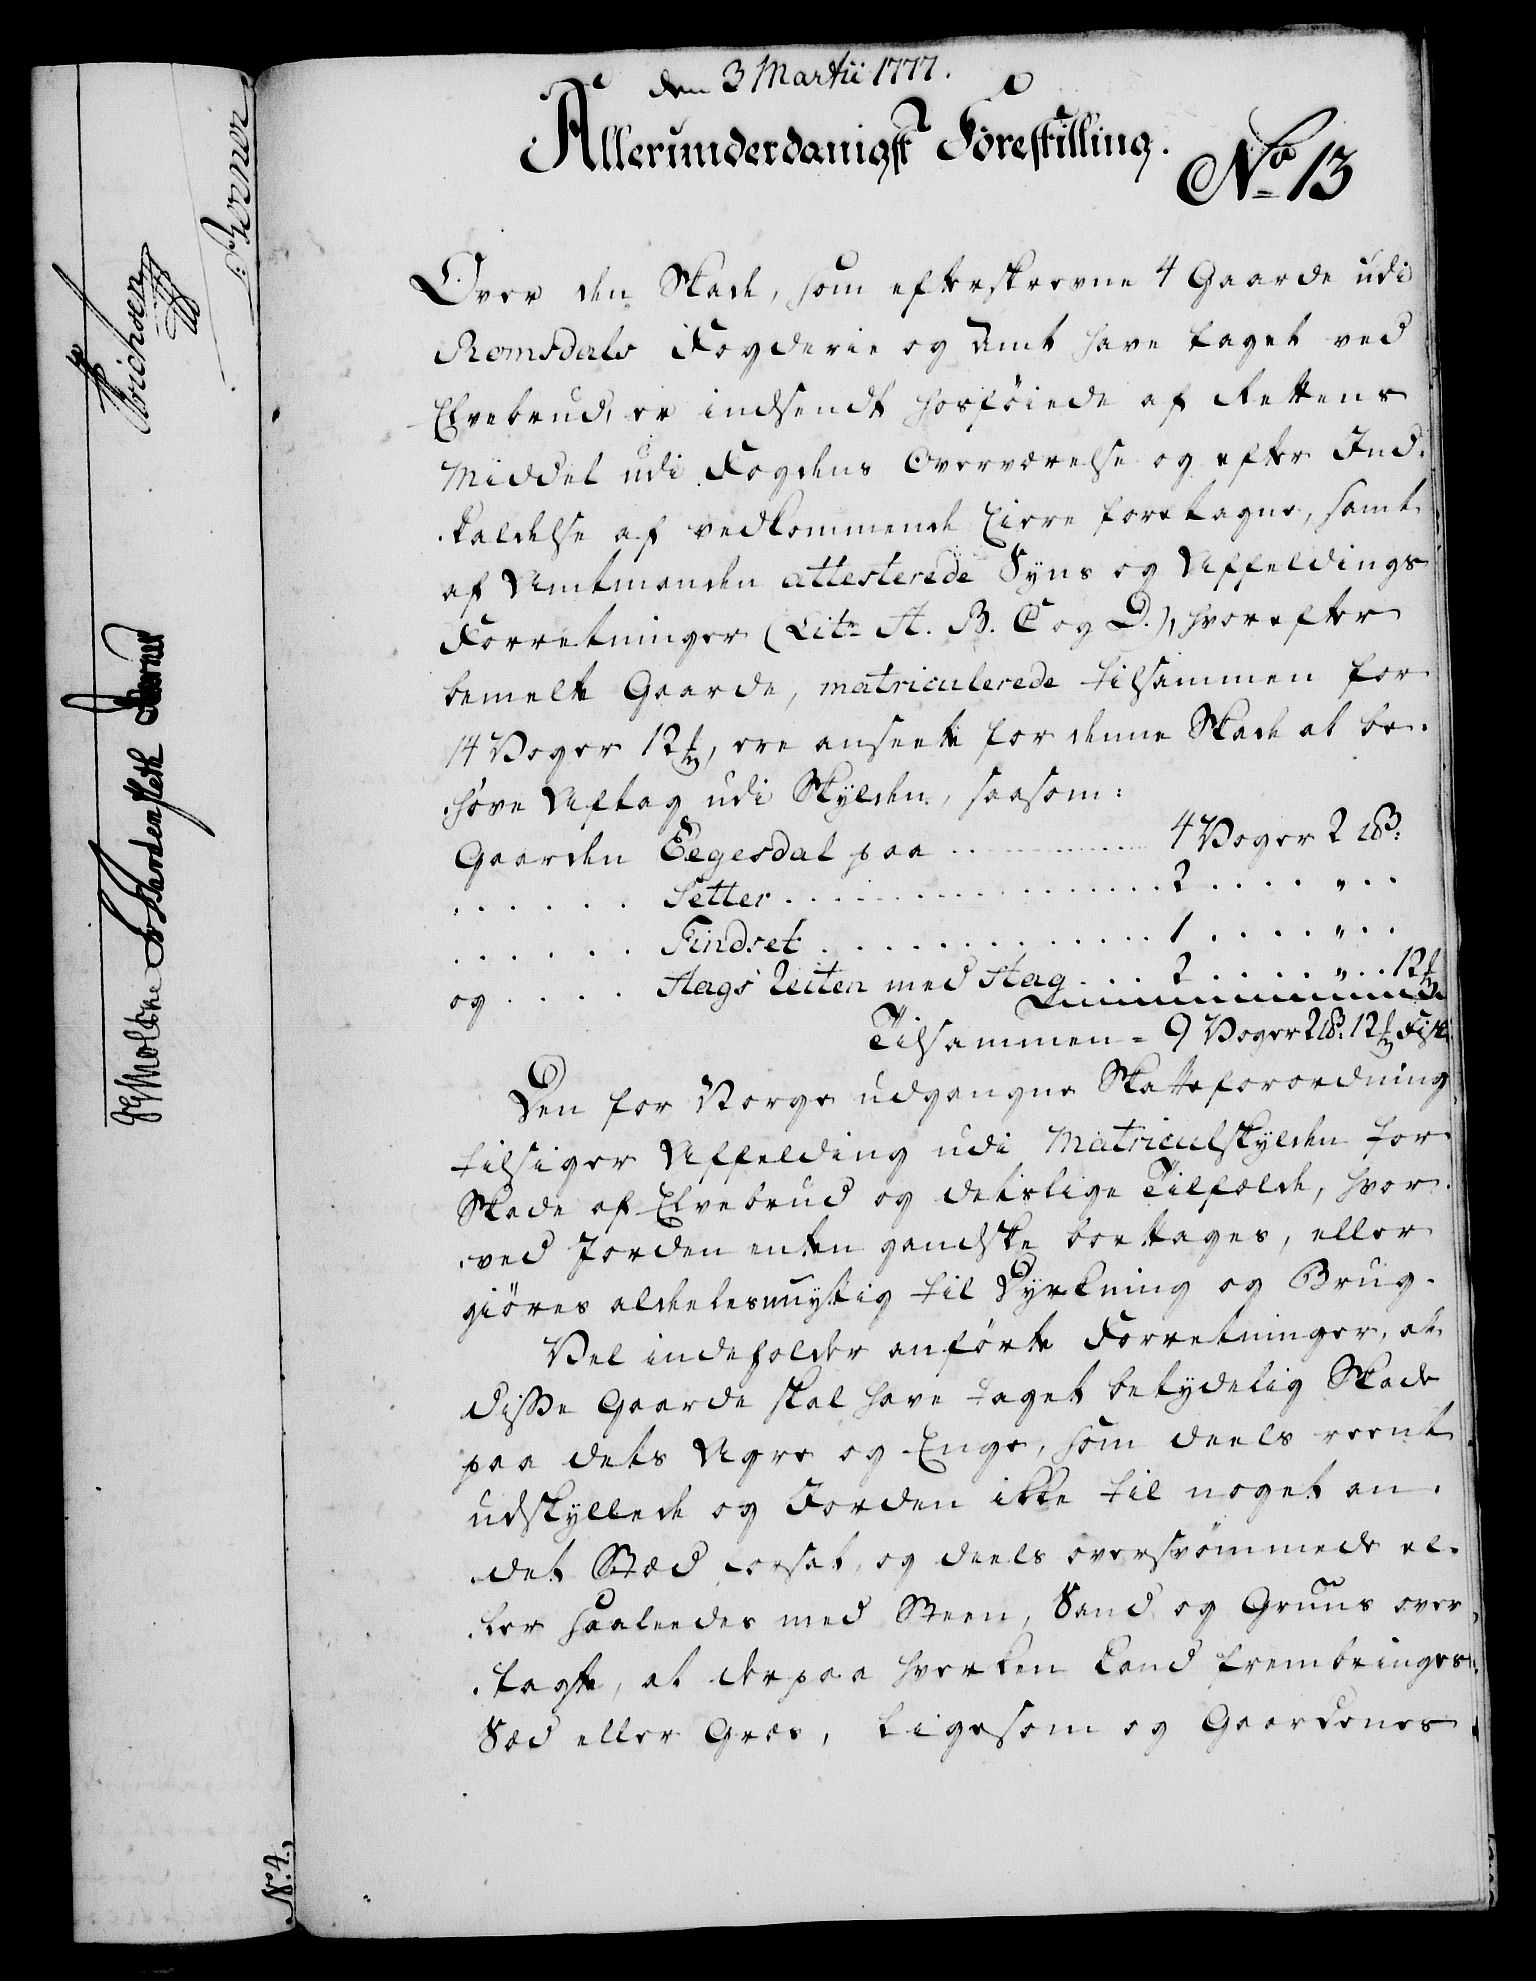 den 3 Martii 1777.
Allerunderdanigst Forestilling.
No 13
Over den Skade, som efterskrevne 4 Gaarde udi
Romsdals Fogderie og Amt have taget ved
Elvebrud, er indsendt hosföiede af Rettens
Middel udi Fogdens Overværelse og efter Ind-
kaldelse af vedkommende Eiere foretagne, samt
af Amtmanden attesterede Syns og Affeldings
Forretninger (Litr A. B. C og D.), hvorefter
bemelte Gaarde, matriculerede tilsammen for
14 Voger 12 , ere ansette for denne Skade at be-
höve Aftag udi Skylden, saasom:
Gaarden Eegesdal paa ........ 4 Voger 2
. . . . . . Setter ........ 2 .... " ..
. . . . . . Findset ........ 1 .... " ..
og .... Aags Leiten med Aag ... 2 .... " .. 12
Tilsammen = 9 Voger 2 12 Fisk
Den for Norge udgangne Skatteforordning
tilsiger Affelding udi Matriculskylden for
Skade af Elvebrud og deslige Tilfælde, hvor-
ved Jorden enten gandske borttages, eller
giöres aldelesunyttig til Dyrkning og Brug.
Vel indeholder anförte Forretninger, at
disse Gaarde skal have taget betydelig Skade
paa dets Agre og Enge, som deels reent
udskyllede og Jorden ikke til noget an-
det Stæd forsat, og deels oversvömmede el-
ler saaledes med Steen, Sand og Gruus over-
lagte, at derpaa hverken kand frembringes
Sæd eller Græs, ligesom og Gaardenes
JGMoltke
Erichsen
No. 4.